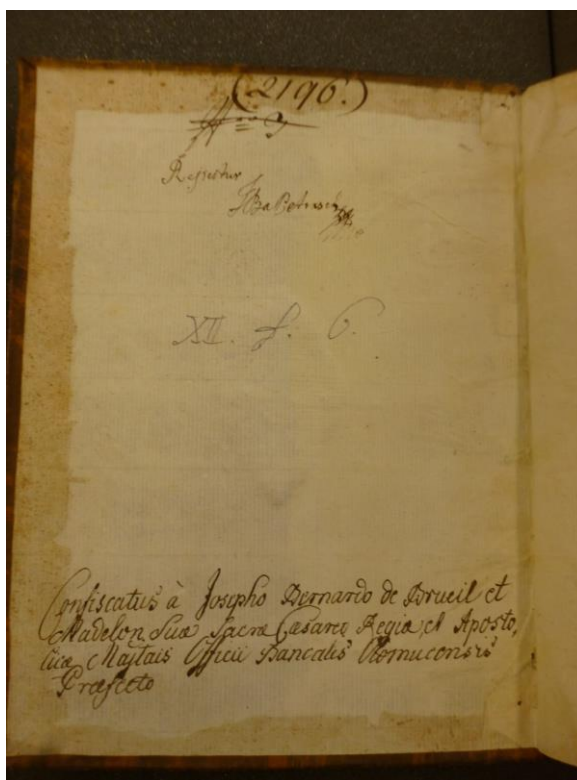 (2196.)
XII. f. 6.
Confiscatus à Josepho Bernardo de Brueil et
Madelon Suæ Sacræ Cæsareæ Regiæ, et Aposto,
licæ Majtais Officii Bancalis Olomucensis
Præfecto